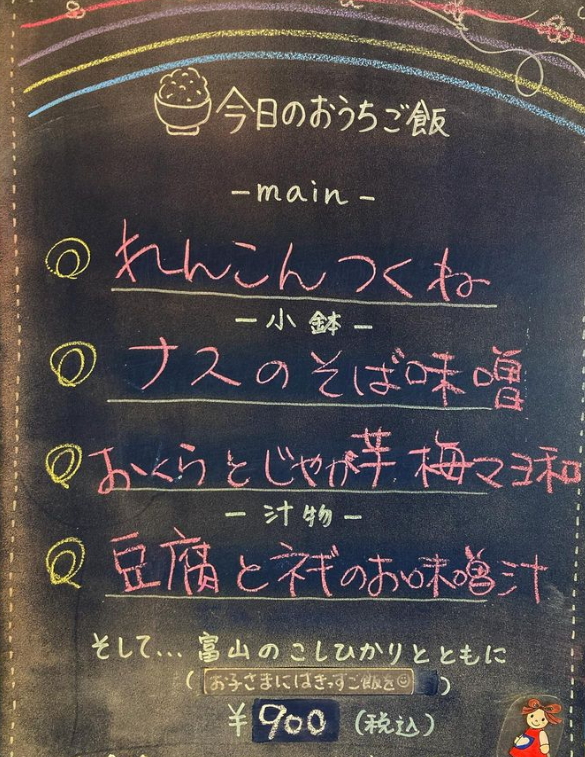 今日のおうちご飯
－main－
れんこんつくね
－小鉢－
ナスのそば味噌
おくらとじゃが芋 梅マヨ和
－汁物－
豆腐とネギのお味噌汁
そして... 富山のこしひかりとともに
(お子さまにはきっずご飯を☺)
¥900 (税込)